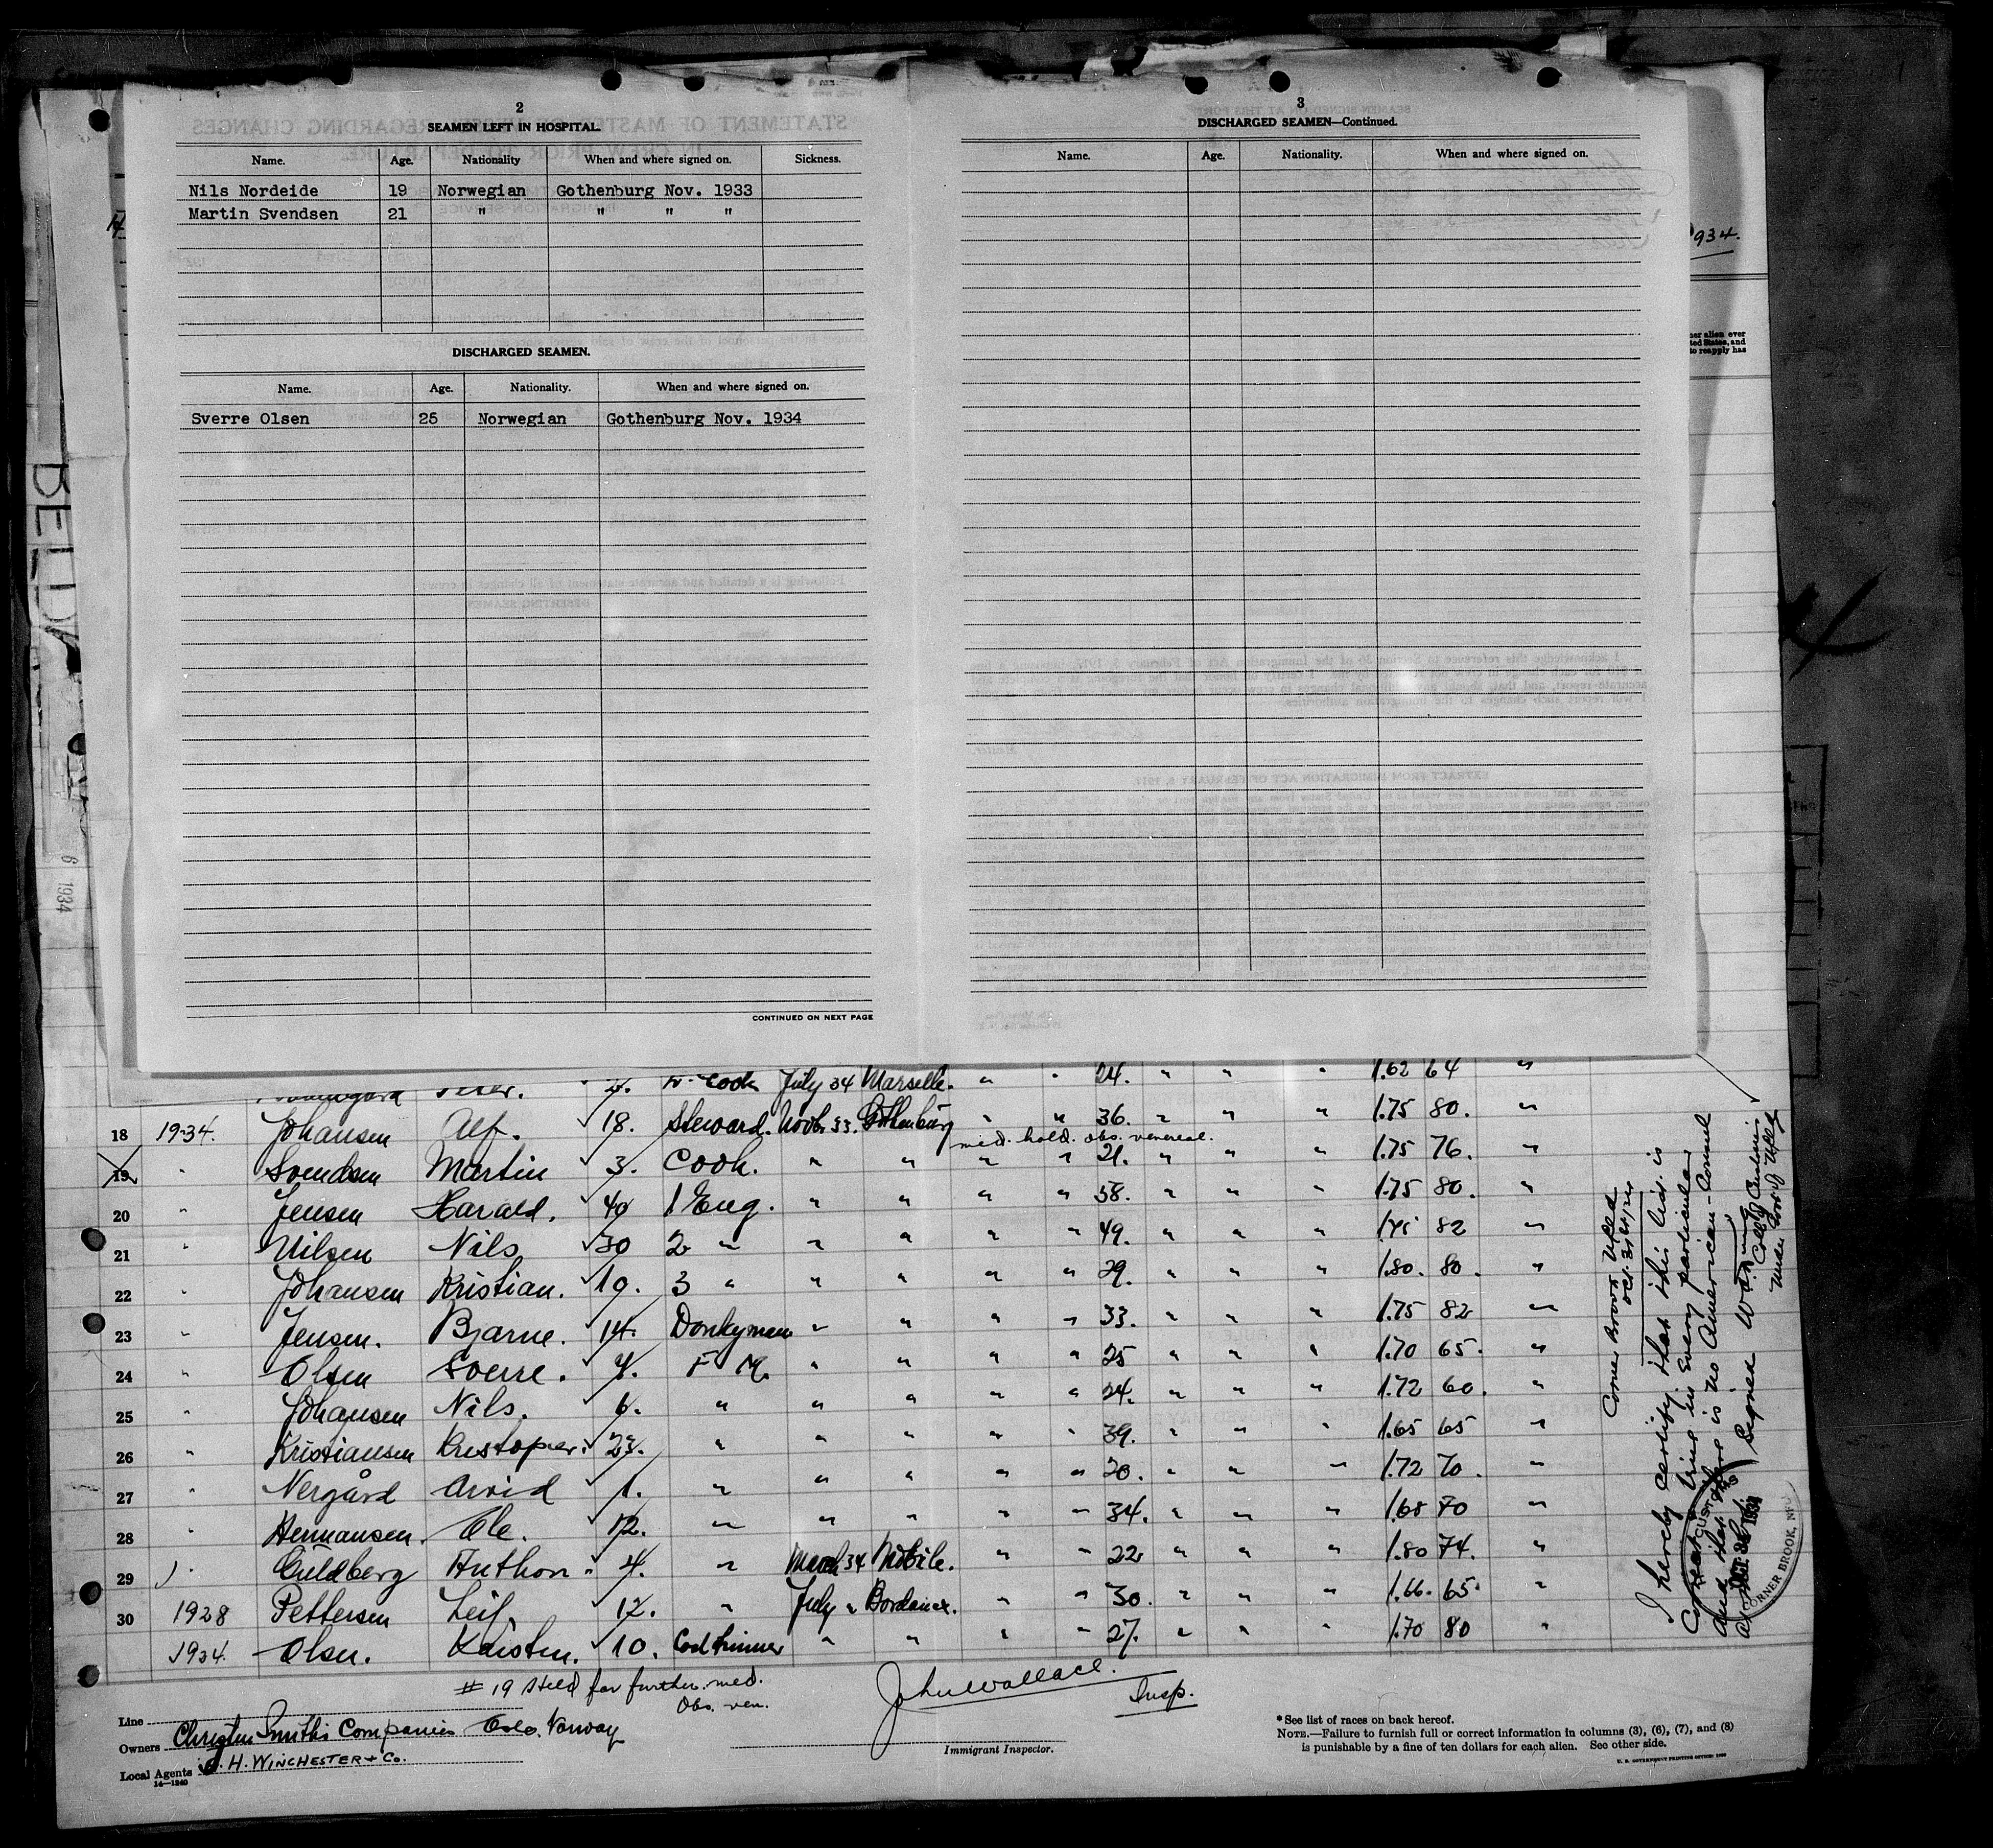 2
SEAMEN LEFT IN HOSPITAL.
Name. Age. Nationality When and where signed on. Sickness.
Nils Nordeide 19 Norwegian Gothenburg Nov. 1933
Martin Svendsen 21 " " " "
DISCHARGED SEAMEN.
Name. Age. Nationality. When and where signed on.
Sverre Olsen 25 Norwegian Gothenburg Nov. 1934
CONTINUED ON NEXT PAGE
3
DISCHARGED SEAMEN—Continued.
Name. Age. Nationality. When and where signed on.
934.
her alien over
ted States, and
to reapply has
6 1934
Cook July 34 Marseille. " " 24. " " " 1.62 64 "
18 1934. Johansen Alf. 18. Steward. Novbr 33. Gothenburg " " 36. " " " 1.75 80. "
med. hold. obs. venereal.
19 " Svendsen Martin 3. Cook. " " " " 21. " " " 1.75 76. "
20 " Jensen Harald. 40 1 Eng. " " " " 58. " " " 1.75 80. "
21 " Nilsen Nils 30 2 " " " " " 49. " " " 1.75 82 "
22 " Johansen Kristian. 10. 3 " " " " " 29. " " " 1.80. 80. "
23 " Jensen. Bjarne. 14. Donkyman " " " " 33. " " " 1.75 82 "
24 " Olsen Sverre. 4. F M. " " " " 25 " " " 1.70 65. "
25 " Johansen Nils. 6. " " " " " 24. " " " 1.72 60. "
26 " Kristiansen 23. " " " " " 39. " " " 1.65 65 "
27 " Nergård Arvid 1. " " " " " 20. " " " 1.72 70. "
28 " Hermansen. Ole. 12. " " " " " 34. " " " 1.68 70 "
29 " Guldberg Anthon 4. " March 34 Mobile. " " 22 " " " 1.80 74. "
30 1928 Pettersen Leif. 12. " July " Bordeaux. " " 30. " " " 1.66. 65. "
1934. Olsen. Karsten. 10. Coaltrimmer " " " " 27. " " " 1.70 80 "
# 19 Held for further med.
Obs. ven.
John Wallace. Insp.
Immigrant Inspector.
Line
Owners Christen Smiths Companies Oslo. Norway
Local Agents H. WINCHESTER & Co.
14—1240
*See list of races on back hereof.
NOTE.—Failure to furnish full or correct information in columns (3), (6), (7), and (8)
is punishable by a fine of ten dollars for each alien. See other side.
U. S. GOVERNMENT PRINTING OFFICE
Corner Brook Nfld
Oct. 31st
I hereby certify that this list is
Correct & true in every particular
and that there is no American Consul
at this port.
Signed
CUSTOMS
1934
CORNER BROOK, NF